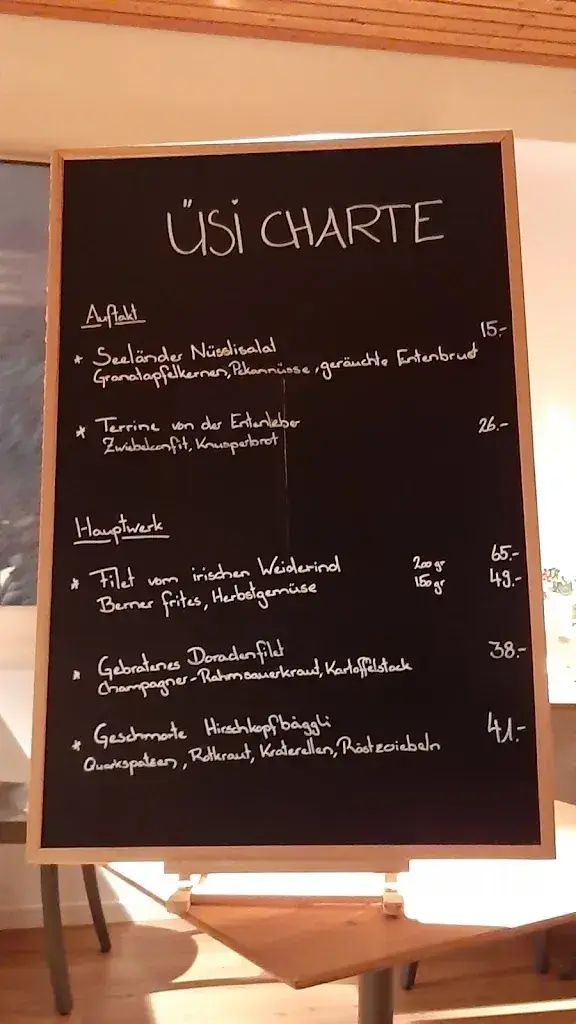 ÜSİ CHARTE
Auftakt
* Seeländer Nüsslisalat 15.-
Granatapfelkernen, Pekannüsse, geräuchte Entenbrust
* Terrine von der Entenleber 26.-
Zwiebelconfit, Knusperbrot
Hauptwerk
* Filet vom irischen Weiderind 200gr 65.-
Berner frites, Herbstgemüse 150gr 49.-
* Gebratenes Doradenfilet 38.-
Champagner-Rahmsauerkraut, Kartoffelstock
* Geschmorte Hirschkopfbäggli 41.-
Quarkspatzen, Rotkraut, Kraterellen, Röstzwiebeln